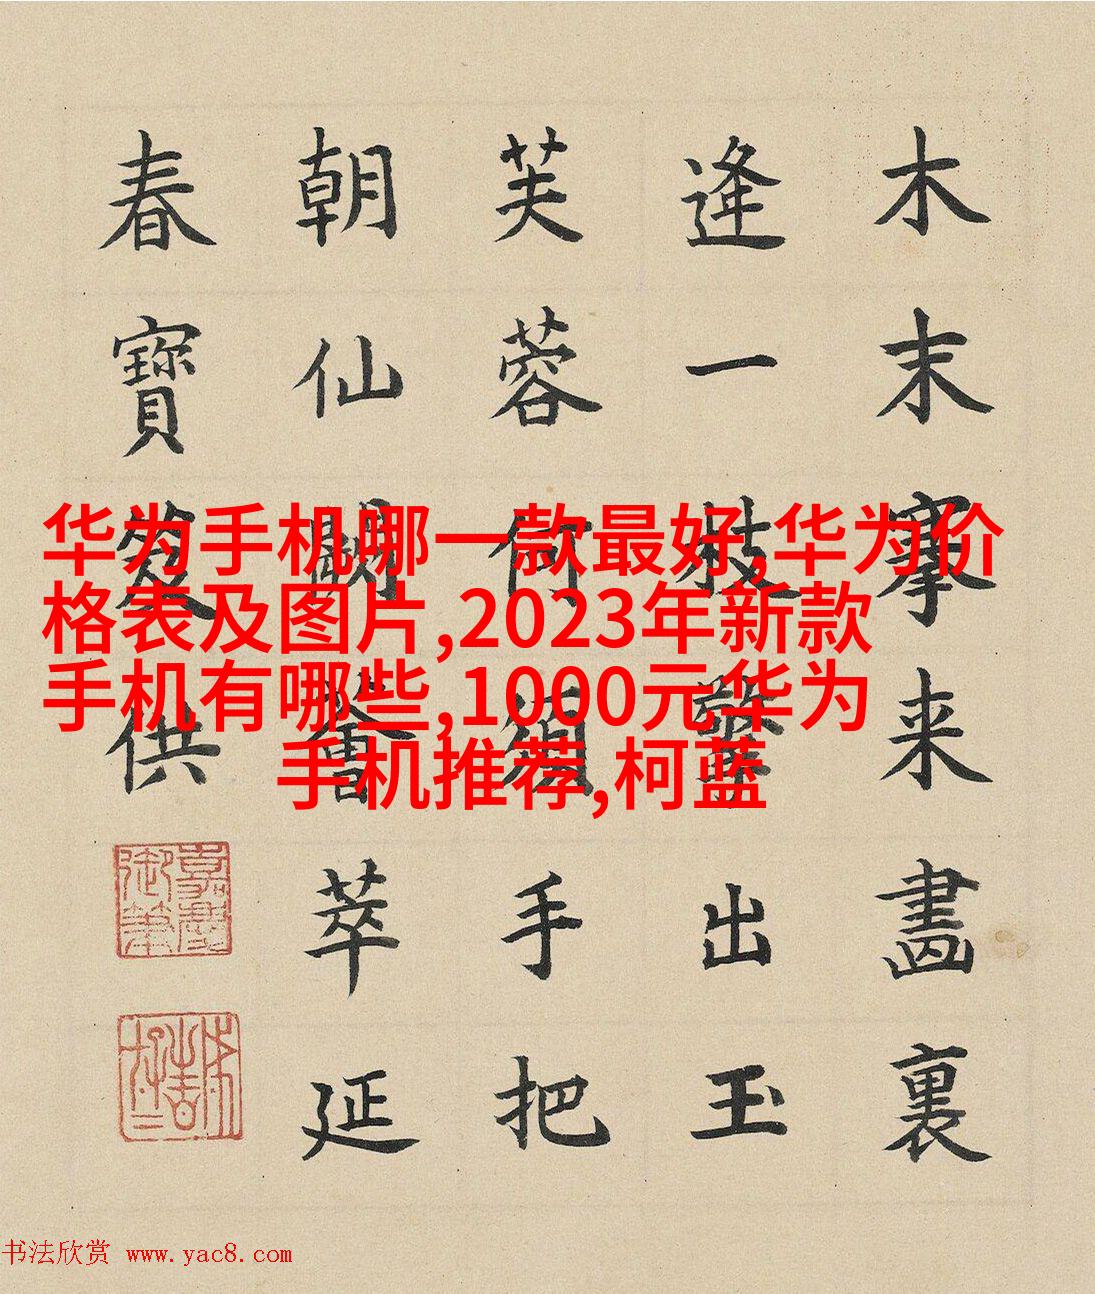 木末搴来畫裏
逢一枝擎出玉
芙蓉何須手把
朝仙闕薈萃延
春寶篆供
嘉慶御筆
华为手机哪一款最好,华为价
格表及图片,2023年新款
手机有哪些,1000元华为
手机推荐,柯蓝
书法欣赏 www.yac8.com